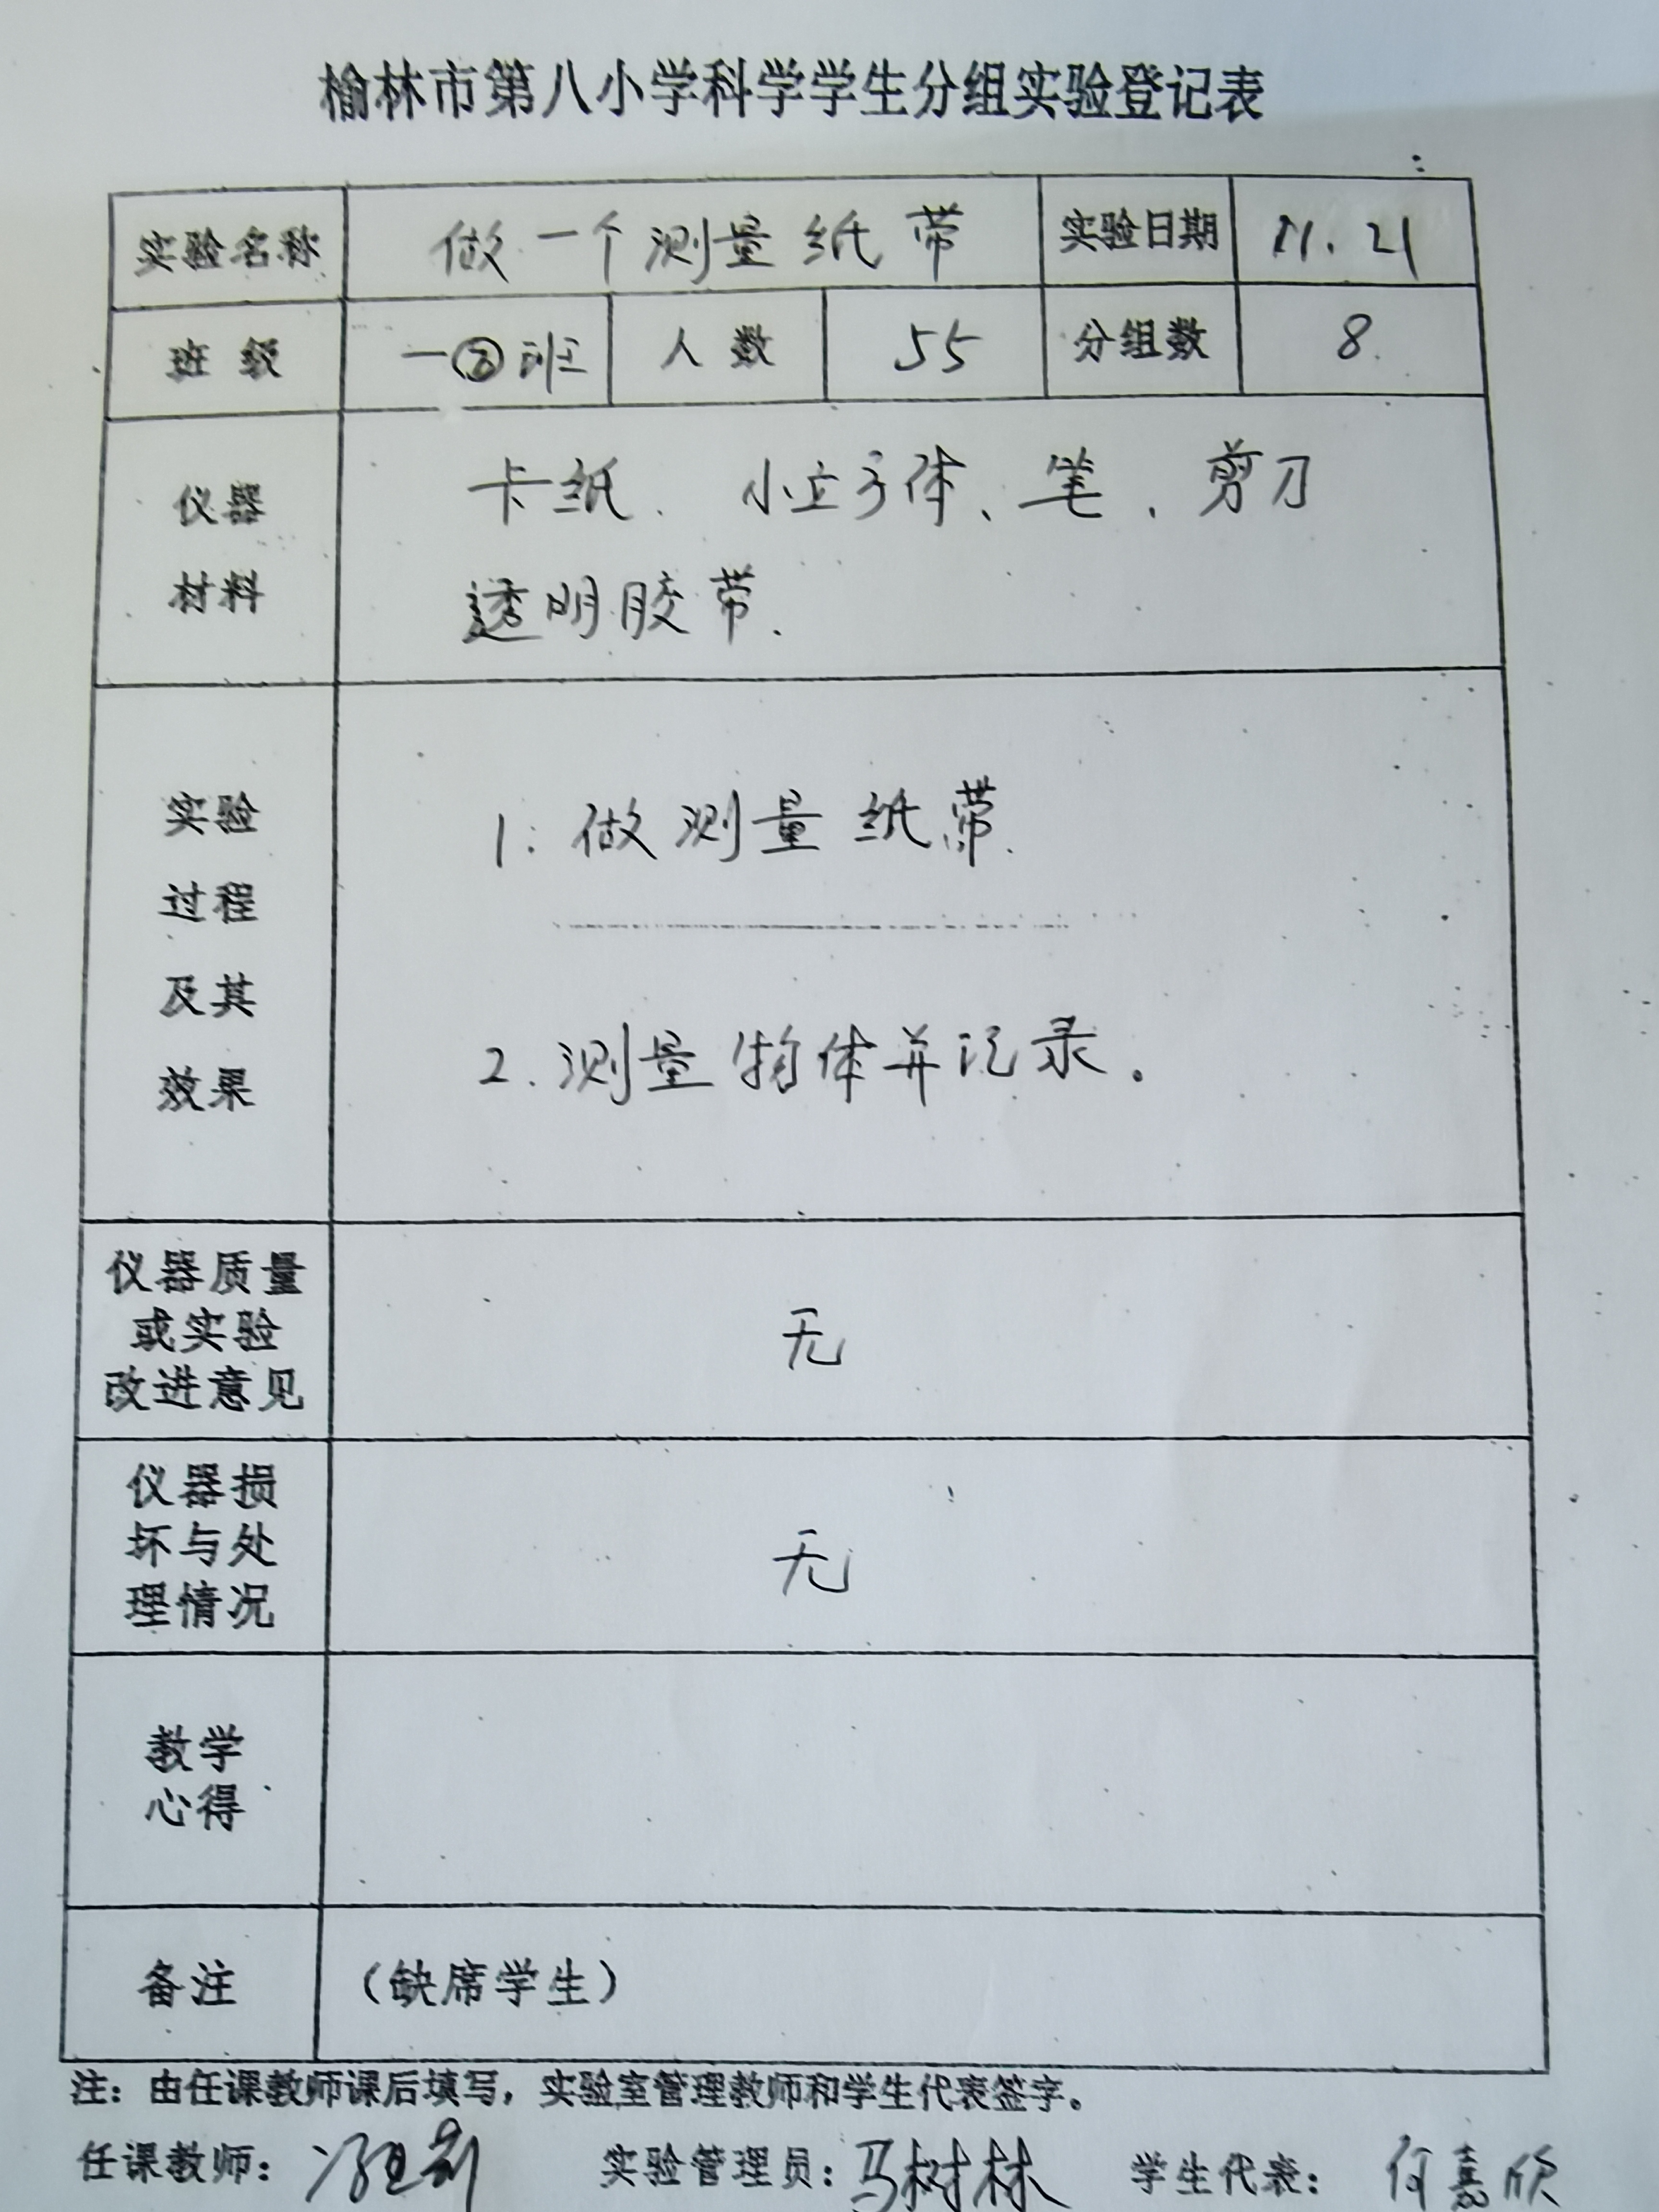 榆林市第八小学科学学生分组实验登记表
实验名称 做一个测量纸带 实验日期 11.21
班级 一 班 人数 55 分组数 8
仪器
材料
卡纸、小立方体、笔、剪刀
透明胶带.
实验
过程
及其
效果
1. 做测量纸带.
2. 测量物体并记录。
仪器质量
或实验
改进意见
无
仪器损
坏与处
理情况
无
教学
心得
备注 (缺席学生)
注：由任课教师课后填写，实验室管理教师和学生代表签字。
任课教师： 实验管理员：马树林 学生代表：何嘉欣